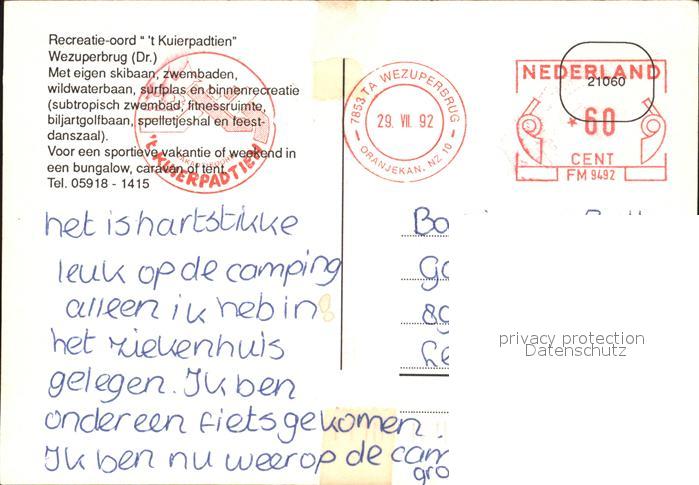 Recreatie-oord " 't Kuierpadtien"
Wezuperbrug (Dr.)
Met eigen skibaan, zwembaden,
wildwaterbaan, surfplas en binnenrecreatie
(subtropisch zwembad, fitnessruimte,
biljartgolfbaan, spelletjeshal en feest-
danszaal).
Voor een sportieve vakantie of weekend in
een bungalow, caravan of tent.
Tel. 05918 - 1415
't KUIERPADTIEN
7853 TA WEZUPERBRUG
29. VII. 92
ORANJEKAN. NZ 10
NEDERLAND
21060
* 60
CENT
FM 9492
het is hartstikke
leuk op de camping
alleen ik heb in
het ziekenhuis
gelegen. Ik ben
onder een fiets gekomen.
Ik ben nu weer op de cam
gro
Bo
Ga
Le
privacy protection
Datenschutz